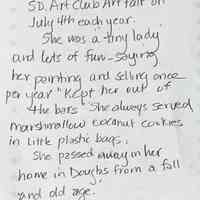 SD. Art Club Art fair on
July 4th each year.
She was a tiny lady
and lots of fun - saying
her painting and selling once
per year "Kept her out of
the bars" She always served
marshmallow coconut cookies
in little plastic bags.
She passed away in her
home in Douglas from a fall
and old age.